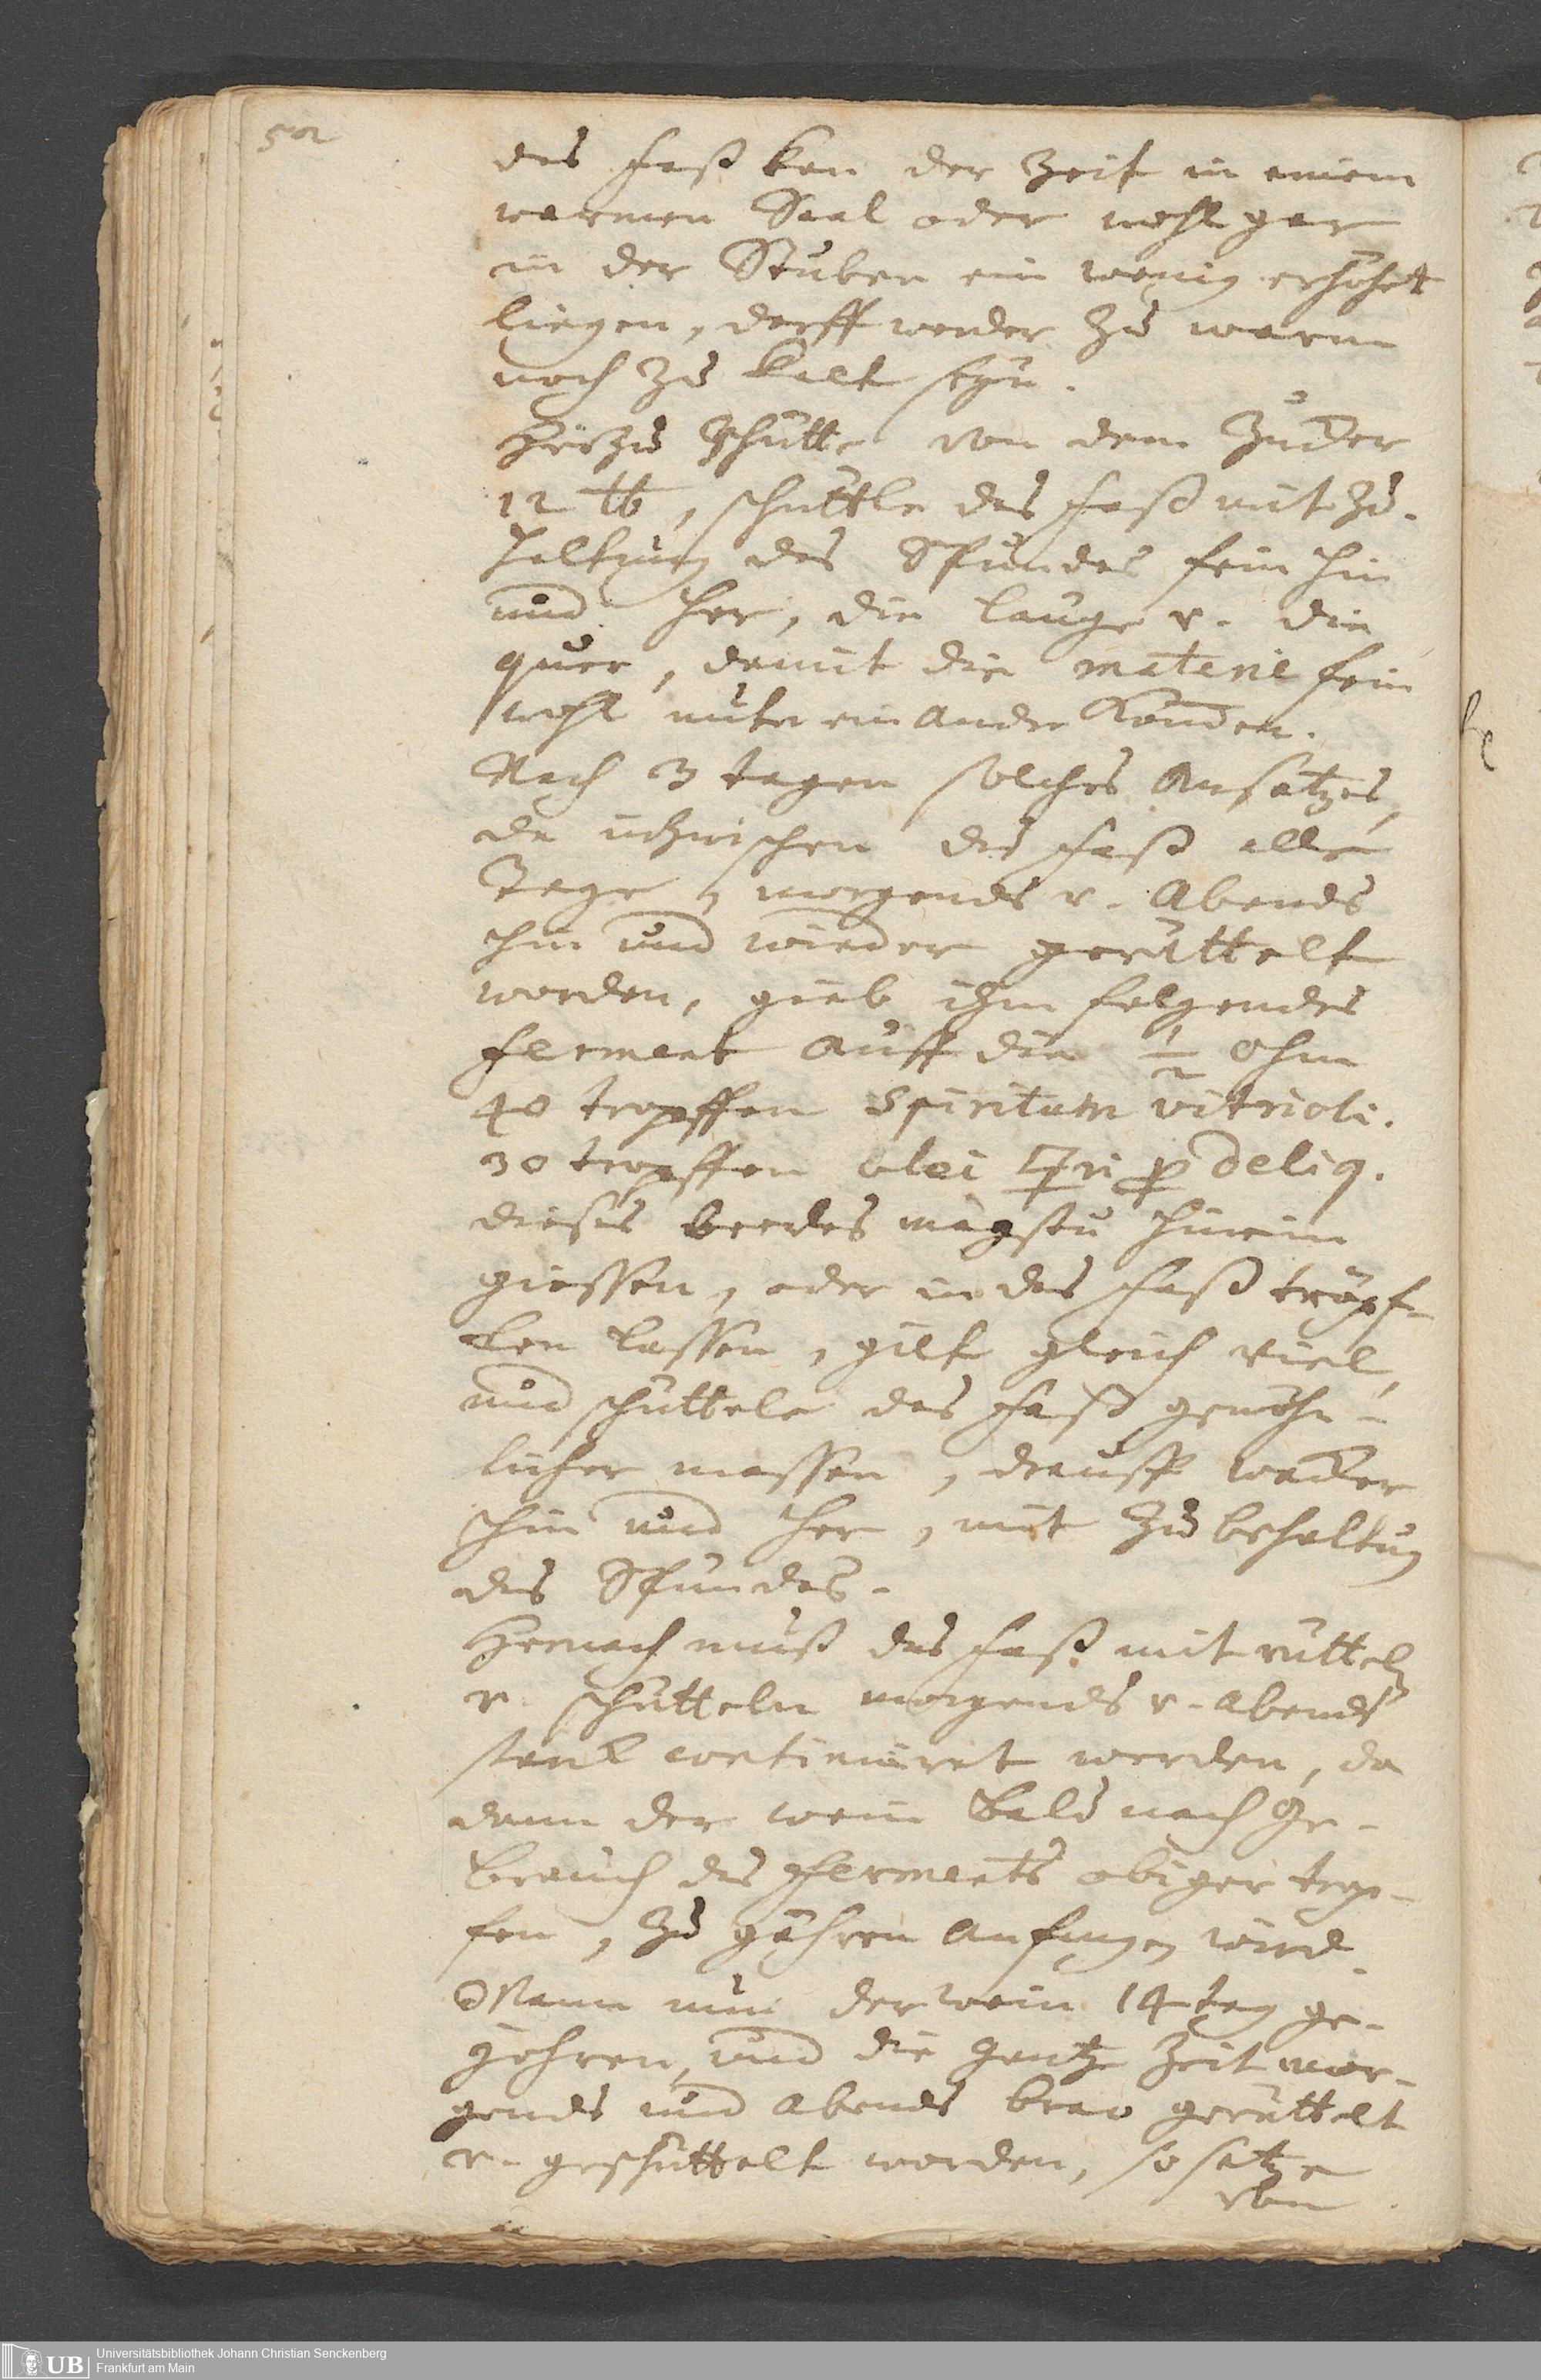 52
das Faß kan der Zeit in einem
warmen Saal oder wohl gar
in der Stuben ein wenig erhöhet
liegen, darff weder zu warm
noch zu kalt seyn.
Hierzu schütte von dem Zucker
12 ℔, schüttle das Faß mit zu-
haltung des Spundes fein hin
und her, die länge v. die
quer, damit die materie fein
wohl unter ein ander kommen.
Nach 3 tagen solches Ansatzes,
da inzwischen das Faß alle
Tage, morgends v. Abends
hin und wieder gerüttelt
worden, gieb ihm folgendes
ferment auff die 1/2 Ohm
40 tropffen Spiritum vitrioli.
30 tropffen olei 🜿ri p deliq.
dieses beedes magstu hinein
giessen, oder in das Faß tröpf-
len lassen, gilt gleich viel,
und schüttele das Faß gewöhn-
licher massen, drauff wacker
hin und her, mit zu behaltung
des Spundes.
Hernach muß das Faß mit rütteln
v. schütteln morgends v. Abends
starck continuiret werden, da
dann der wein bald nach Ge-
brauch des Ferments obiger trop-
fen, zu gähren anfangen wird.
Wann nun der wein 14 tag ge-
gohren, und die gantze Zeit mor-
gends und abends brav gerüttelt
v. geschüttelt worden, so setze
von
UB Universitätsbibliothek Johann Christian Senckenberg
Frankfurt am Main